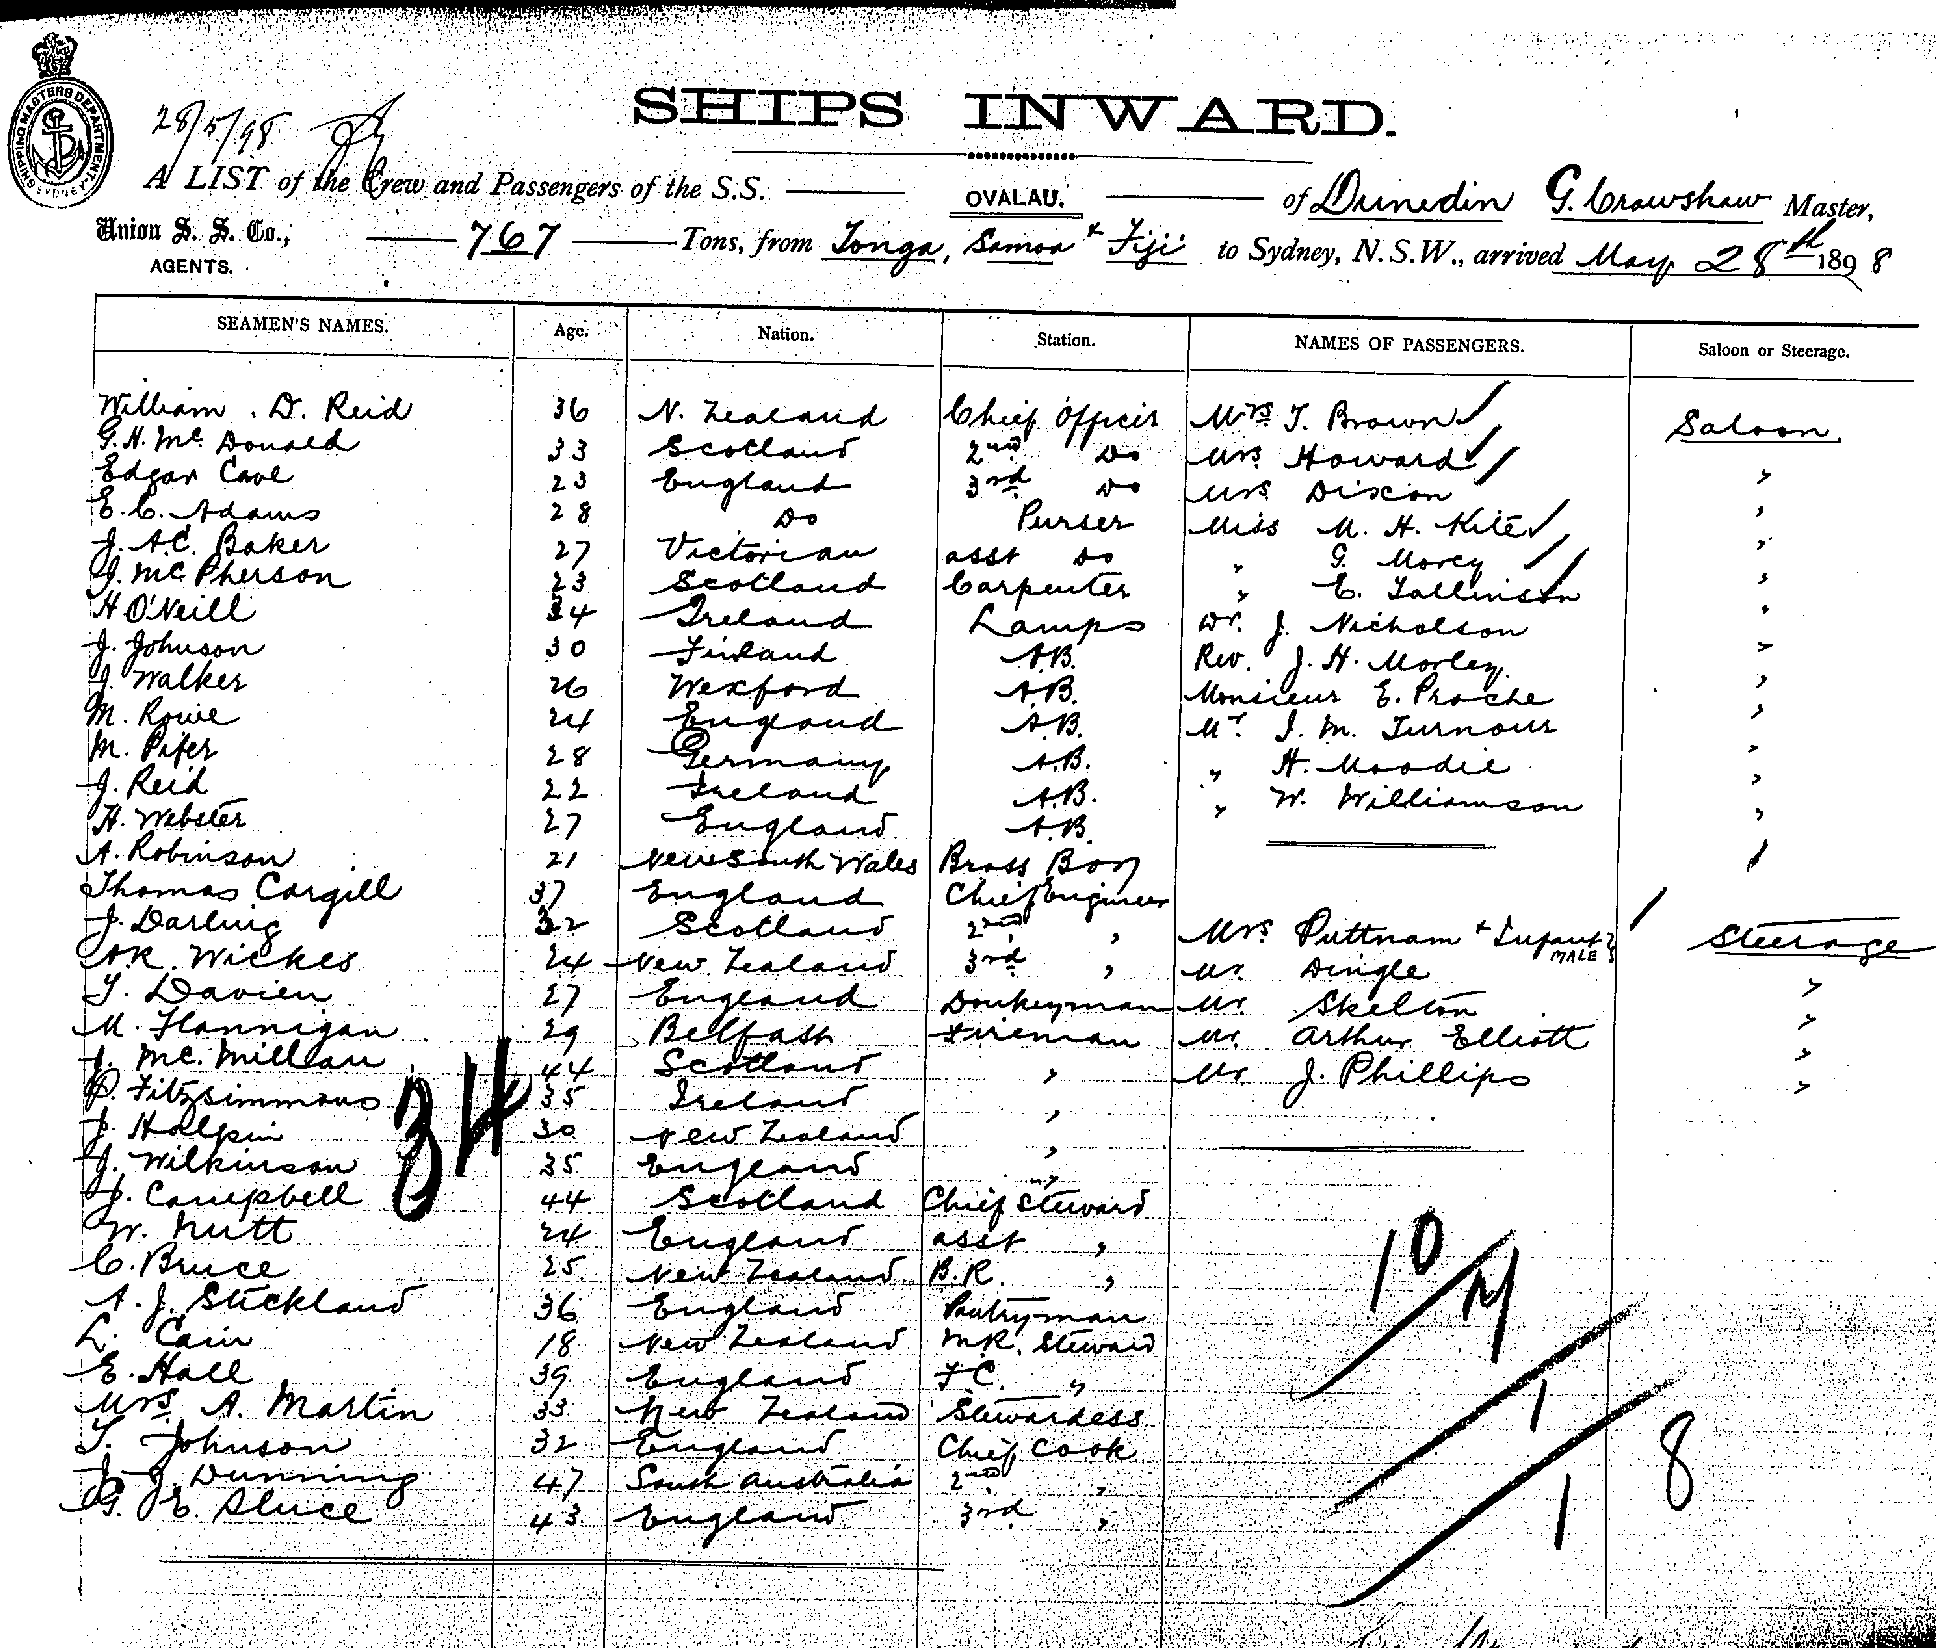 SHIPPING MASTERS DEPARTMENT
SYDNEY
28/5/98
SHIPS INWARD.
A LIST of the Crew and Passengers of the S.S. OVALAU. of Dunedin G. Crawshaw Master,
Union S. S. Co., AGENTS. 767 Tons, from Tonga, Samoa & Fiji to Sydney, N.S.W., arrived May 28th 1898
SEAMEN'S NAMES. Age. Nation. Station. NAMES OF PASSENGERS. Saloon or Steerage.
William. D. Reid 36 N. Zealand Chief Officer Mrs T. Brown Saloon
G. H. Mc Donald 33 Scotland 2nd Do Mrs Howard "
Edgar Cave 23 England 3rd Do Mrs Dixon "
E. C. Adams 28 Do Purser Miss M. H. Kite "
J. A.C. Baker 27 Victorian asst do " G. Morey "
J. McPherson 23 Scotland Carpenter " E. Tallinson "
H O'Neill 34 Ireland Lamps Dr. J. Nicholson "
J. Johnson 30 Finland A.B. Rev. J. H. Morley "
J. Walker 26 Wexford A.B. Monsieur E. Proche "
M. Rowe 24 England A.B. Mr. J. M. Turnour "
M. Pifer 28 Germany A.B. " H. Moodie "
J. Reid 22 Ireland A.B. " W. Williamson "
H. Webster 27 England A.B.
A. Robinson 21 New South Wales Brass Boy
Thomas Cargill 37 England Chief Engineer
J. Darling 32 Scotland 2nd " Mrs Puttnam & Infant MALE Steerage
Wickes 24 New Zealand 3rd " Mr. Dingle "
T. Davien 27 England Donkeyman Mr Skelton "
M. Flannigan 29 Belfast Fireman Mr. Arthur Elliott "
J. Mc. Millan 44 Scotland " Mr J. Phillips "
P. Fitzsimmons 35 Ireland "
J. Halpin 30 New Zealand "
J. Wilkinson 35 England "
J. Campbell 44 Scotland Chief Steward
W. Nutt 24 England asst "
C. Bruce 25 New Zealand B.R. "
A. J. Stickland 36 England Pantryman
L. Cain 18 New Zealand M.R. Steward
E. Hall 39 England F.C. "
Mrs A. Martin 33 New Zealand Stewardess
T. Johnson 32 England Chief Cook
J. J. Dunning 47 South Australia 2nd "
G. E. Sluce 43 England 3rd "
34
10
1
1
8